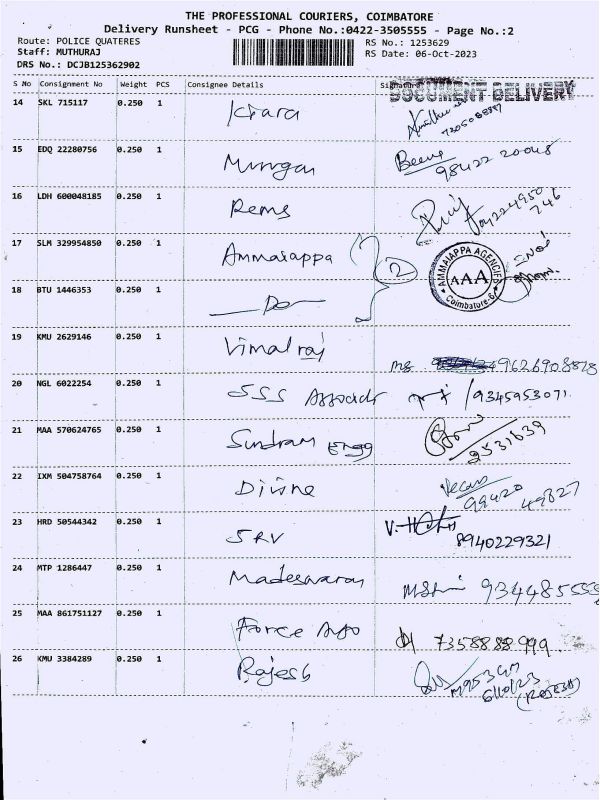 THE PROFESSIONAL COURIERS, COIMBATORE
Delivery Runsheet - PCG - Phone No.:0422-3505555 - Page No.:2
Route: POLICE QUATERES RS No.: 1253629
Staff: MUTHURAJ RS Date: 06-Oct-2023
DRS No.: DCJB125362902
S No Consignment No Weight PCS Consignee Details Signature
DOCUMENT DELIVERY
14 SKL 715117 0.250 1 Kiara
15 EDQ 22280756 0.250 1 Murugan 98422 20048
16 LDH 600048185 0.250 1 Rems
17 SLM 329954850 0.250 1 Ammaiappa 2
AMMAIAPPA AGENCIES
AAA
Coimbatore-6
18 BTU 1446353 0.250 1 Do
19 KMU 2629146 0.250 1 Vimalraj 9626908878
20 NGL 6022254 0.250 1 SSS Associats 9345953071
21 MAA 570624765 0.250 1 Sundram Engg 2531639
22 IXM 504758764 0.250 1 Divine
99420 49827
23 HRD 50544342 0.250 1 SRV
8940229321
24 MTP 1286447 0.250 1 Madeswaran 9344855558
25 MAA 861751127 0.250 1 Force Auto 7358888999
26 KMU 3384289 0.250 1 Rajesh
(RAJESH)